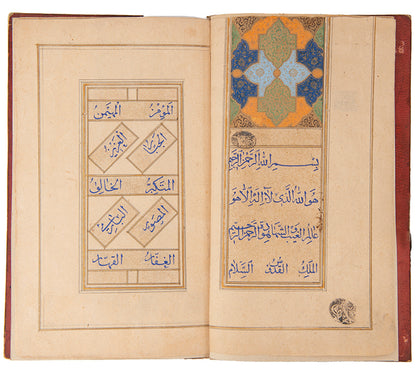 بسم الله الرحمن الرحيم
هو الله الذي لا اله الا هو
عالم الغيب والشهادة هو الرحمن الرحيم
الملك القدوس السلام
المؤمن المهيمن
الجبار العزيز
المتكبر الخالق
المصور البارئ
الغفار القهار